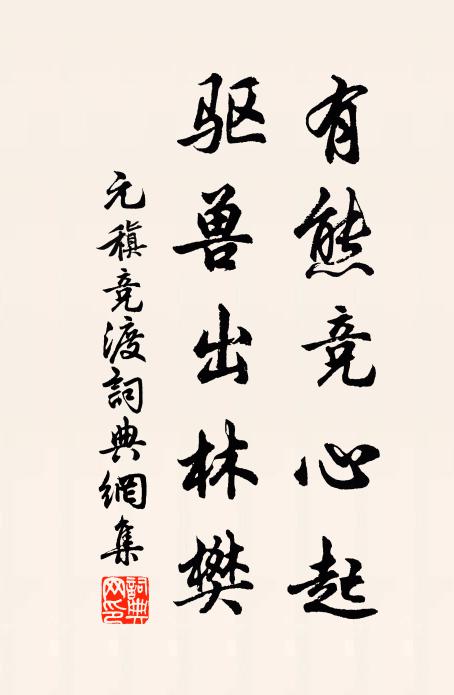 有熊竞心起
驱兽出林樊
元稹竞渡詞典網集
詞典網印